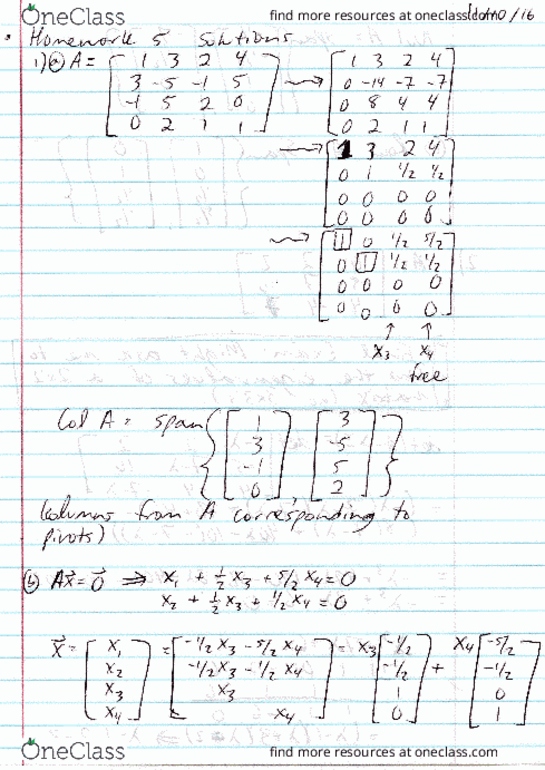 OneClass find more resources at oneclass.com
10/16
• Homework 5 solutions
1) ⓐ A = [1 3 2 4; 3 -5 -1 5; -1 5 2 0; 0 2 1 1] ⟿ [1 3 2 4; 0 -14 -7 -7; 0 8 4 4; 0 2 1 1]
⟿ [1 3 2 4; 0 1 1/2 1/2; 0 0 0 0; 0 0 0 0]
⟿ [1 0 1/2 5/2; 0 1 1/2 1/2; 0 0 0 0; 0 0 0 0]
↑ ↑
x₃ x₄
free
Col A = span { [1; 3; -1; 0], [3; -5; 5; 2] }
(columns from A corresponding to
pivots)
ⓑ Ax⃗ = 0⃗ ⇒ x₁ + 1/2 x₃ + 5/2 x₄ = 0
x₂ + 1/2 x₃ + 1/2 x₄ = 0
x⃗ = [x₁; x₂; x₃; x₄] = [-1/2 x₃ - 5/2 x₄; -1/2 x₃ - 1/2 x₄; x₃; x₄] = x₃ [-1/2; -1/2; 1; 0] + x₄ [-5/2; -1/2; 0; 1]
OneClass find more resources at oneclass.com